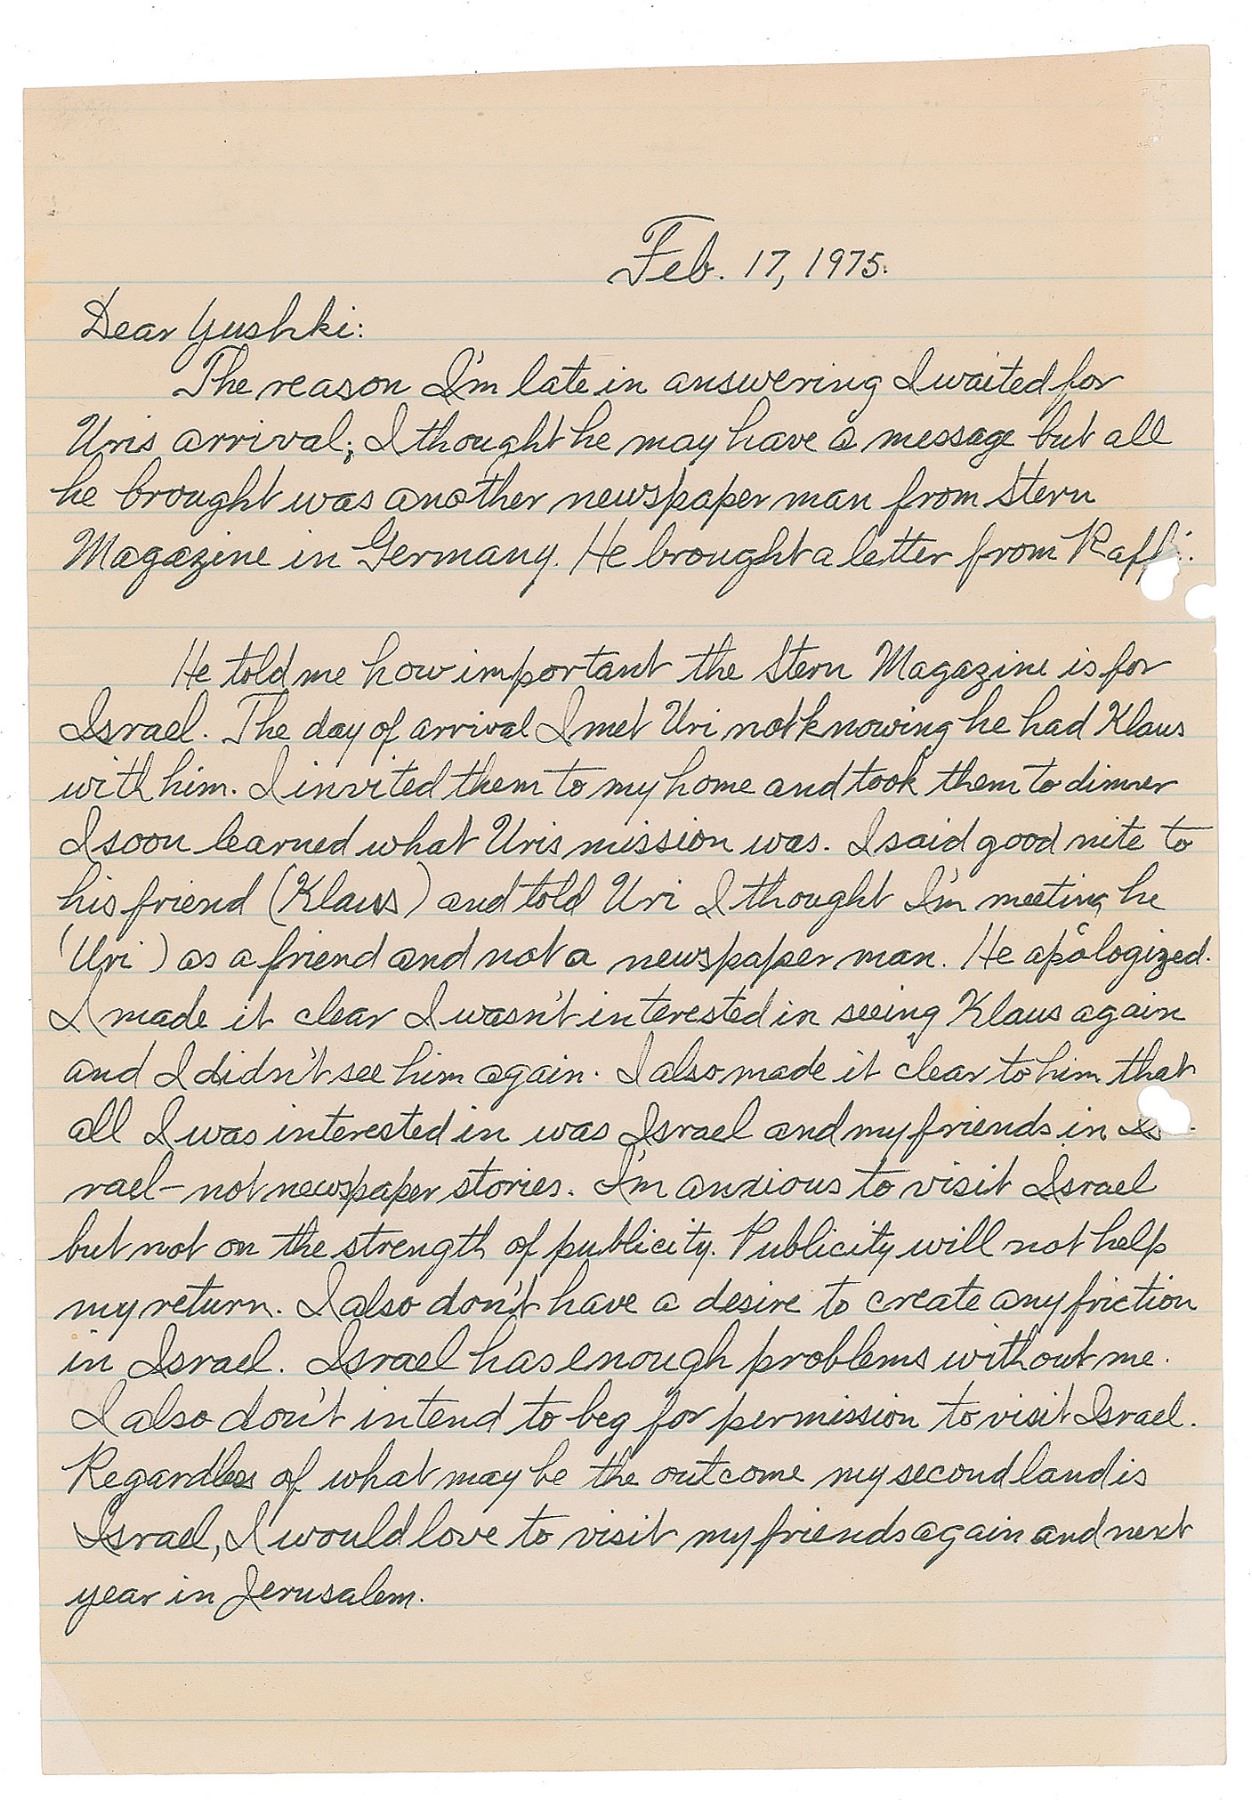 Feb. 17, 1975.
Dear Yushki:
The reason I'm late in answering I waited for
Uris arrival; I thought he may have a message but all
he brought was another newspaper man from Stern
Magazine in Germany. He brought a letter from Raffi.
He told me how important the Stern Magazine is for
Israel. The day of arrival I met Uri not knowing he had Klaus
with him. I invited them to my home and took them to dinner
I soon learned what Uris mission was. I said good nite to
his friend (Klauss) and told Uri I thought I'm meeting he
(Uri) as a friend and not a newspaper man. He apologized.
I made it clear I wasn't interested in seeing Klaus again
and I didn't see him again. I also made it clear to him that
all I was interested in was Israel and my friends in Is-
rael - not newspaper stories. I'm anxious to visit Israel
but not on the strength of publicity. Publicity will not help
my return. I also don't have a desire to create any friction
in Israel. Israel has enough problems without me.
I also don't intend to beg for permission to visit Israel.
Regardless of what may be the outcome my second land is
Israel, I would love to visit my friends again and next
year in Jerusalem.